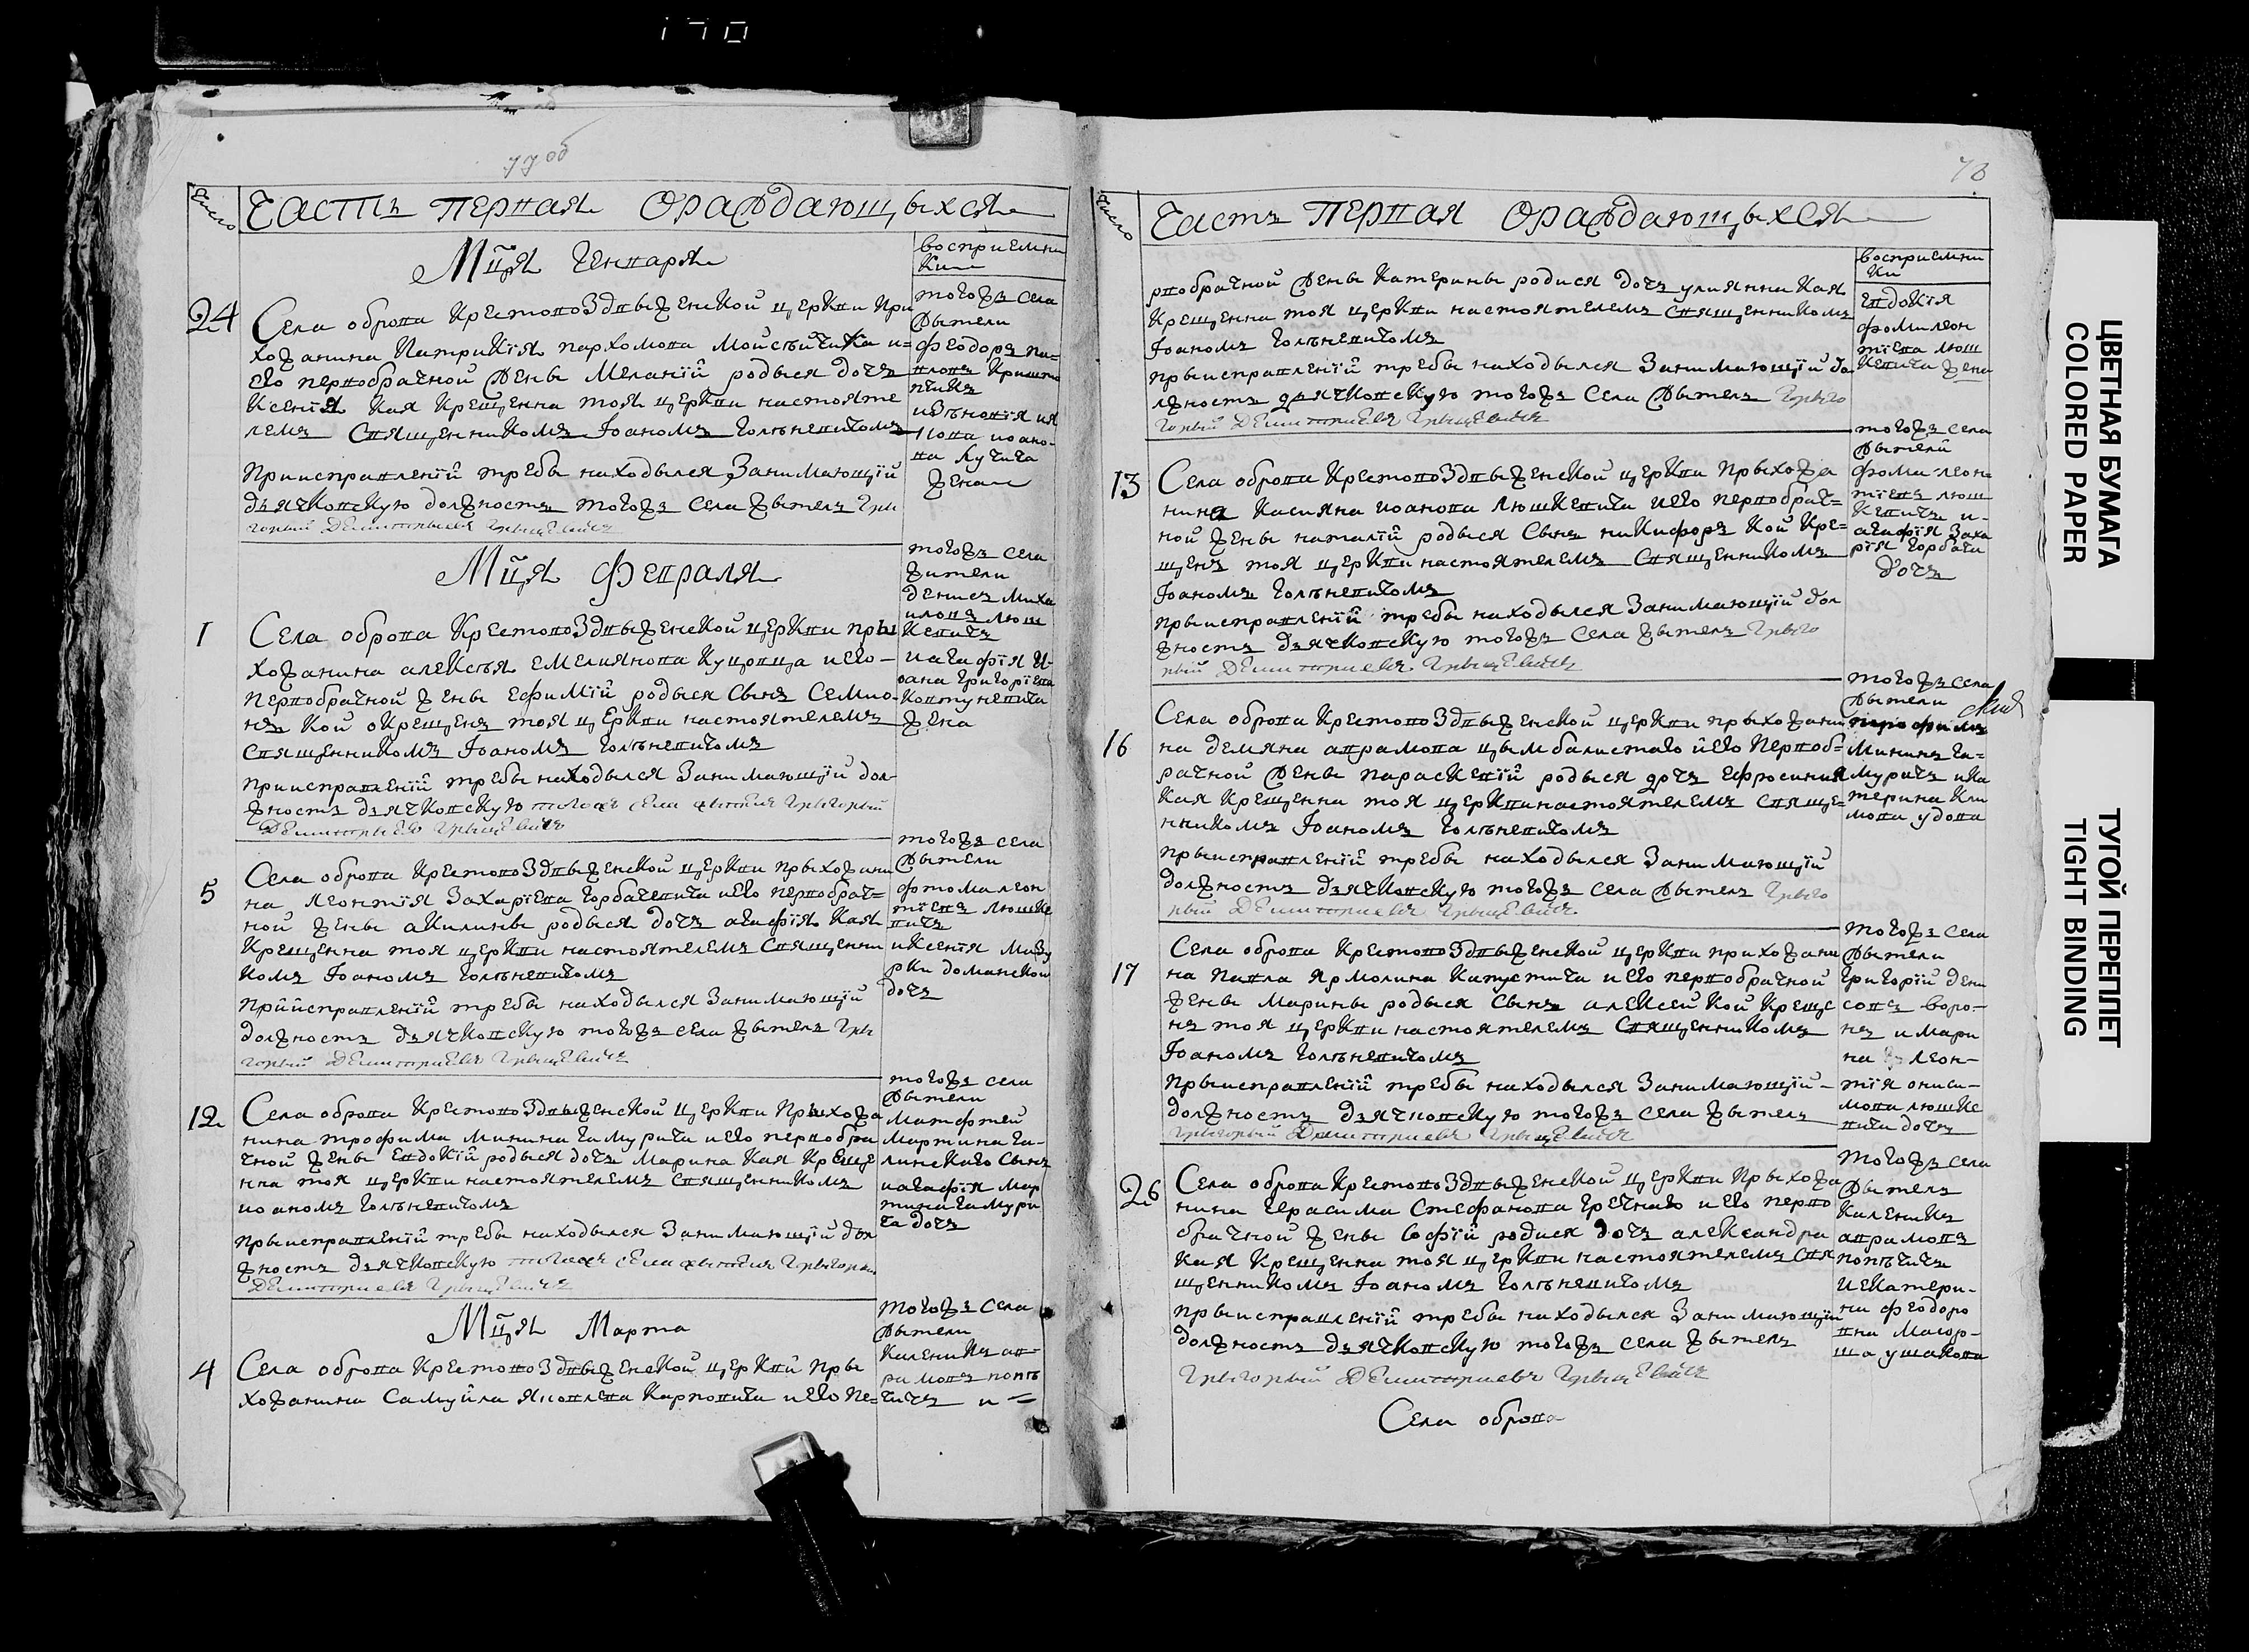 170
77 об
Число
Часть первая ораждающыхся
Мця Генваря
восприемни
ки
24
Села оброва Крестовоздвыженской церкви при
хожанина Патрикія пархомова Мойсѣйчика и
его первобрачной жены Меланіи родыся дочъ
Ксенія кая крещенна тоя церкви настояте
лемъ священникомъ Іоаномъ Голѣневичомъ
При исправленіи требы находылся занимающій
дьячковскую должность тогожъ села жытель Гры
горый Демитрыевъ Грыцевичъ
тогожъ села
жытели
феодоръ па=
вловъ
жена
Мця февраля
1
Села оброва Крестовоздвыженской церкви пры
хожанина алексѣя емелиянова Куцовца и его
первобрачной жены ефимій родыся сынъ Семио
нъ кой окрещенъ тоя церкви настоятелемъ
священникомъ Іоаномъ Голѣневичомъ
при исправленіи требы находылся занимающій дол
жность дьячковскую тогожъ села жытель Грыгорый
Демитрыевъ Грыцевичъ
тогожъ села
жители
денисъ миха
иловъ люш
кевичъ
и агафія И
вана григоріева
Ковтуневича
жена
5
Села оброва Крестовоздвыженской церкви прыхожани
на леонтія захаріева Горбачевича и его первобрач=
ной жены акилины родыся дочъ агафія кая
крещенна тоя церкви настоятелемъ священни
комъ Іоаномъ Голѣневичомъ
при исправленіи требы находылся занимающій
должность дьячковскую тогожъ села жытель Гры
горый Демитриевъ Грыцевичъ
тогожъ села
жытели
фома леон
тіевъ люшке
вичъ
и ксенія
доманской
дочъ
12
Села оброва Крестовоздвыженской церкви прыхожа
нина трофима минина Гамурича и его первобра
чной жены евдокіи родыся дочъ Марина кая креще
нна тоя церкви настоятелемъ священникомъ
иоаномъ Голѣневичомъ
при исправленіи требы находылся занимающій дол
жность дьячковскую тогожъ села жытель Грыгорый
Демитриевъ Грыцевичъ
тогожъ села
жытели
матфтей
мартина га-
линского сынъ
и агафія мар
тина гамури
ча дочъ
Мця Марта
4
Села оброва Крестовоздвыженской церкви пры
хожанина Самуйла яковлева Карповича и его пе=
тогожъ села
жытели
каленикъ ав
рамовъ попѣ
чичъ и
78
Число
Часть Первая ораждающыхся
восприемни
ки
рвобрачной жены Катерины родися дочъ улиянна кая
крещенна тоя церкви настоятелемъ священникомъ
Іоаномъ Голѣневичомъ
при исправленіи требы находылся занимающій до
лжность дьячковскую тогожъ села жытель Грыго
горый Демитриевъ Грыцевичъ
евдокія
фоми леон
тіева люш
кевича жена
13
Села оброва Крестовоздвыженской церкви прыхожа
нина Касияна иоанова люшкевича и его первобрач=
ной жены наталій родыся сынъ никифоръ кой кре=
щенъ тоя церкви настоятелемъ священникомъ
Іоаномъ Голѣневичомъ
при исправленіи требы находылся занимающій дол
жность дьячковскую тогожъ села жытель Грыго
рый Демитриевъ Грыцевичъ
тогожъ села
жытели
фома леон
тіевъ люш
кевичъ и
агафія заха
рія горбача
дочъ
16
Села оброва Крестовоздвыженской церкви прыхожани
на демяна аврамова цымбалистаго и его первоб=
рачной жены параскевій родыся дочъ ефросиния
кая крещенна тоя церкви настоятелемъ священ
нникомъ Іоаномъ Голѣневичомъ
при исправленіи требы находылся занимающій
должность дьячковскую тогожъ села жытель Грыго
рый Демитриевъ Грыцевичъ
тогожъ села
жытели
трофимъ
мининъ га-
муричъ и ка
терина кли
мова удова
17
Села оброва Крестовоздвыженской церкви прихожани
на павла ярмолина Капустича и его первобрачной
жены Марины родыся сынъ алексей кой креще
нъ тоя церкви настоятелемъ священникомъ
Іоаномъ Голѣневичомъ
при исправленіи требы находылся занимающій
должность дьячковскую тогожъ села жытель
Грыгорый Демитриевъ Грыцевичъ
тогожъ села
жытели
григорій дени
совъ воро-
нъ и мари
на леон-
тія ониси-
мова люшке
вича дочъ
26
Села оброва Крестовоздвыженской церкви прыхожа
нина герасима Стефанова гречнаго и его перво
брачной жены софій родися дочъ александра
кая крещенна тоя церкви настоятелемъ свя
щенникомъ Іоаномъ Голѣневичомъ
при исправленіи требы находылся занимающій
должность дьячковскую тогожъ села жытель
Грыгорый Демитриевъ Грыцевичъ
тогожъ села
жытель
каленикъ
аврамовъ
попѣчичъ
и екатери-
на феодоро
вна маиор-
ша ушакова
Села оброва
ЦВЕТНАЯ БУМАГА
COLORED PAPER
ТУГОЙ ПЕРЕПЛЕТ
TIGHT BINDING